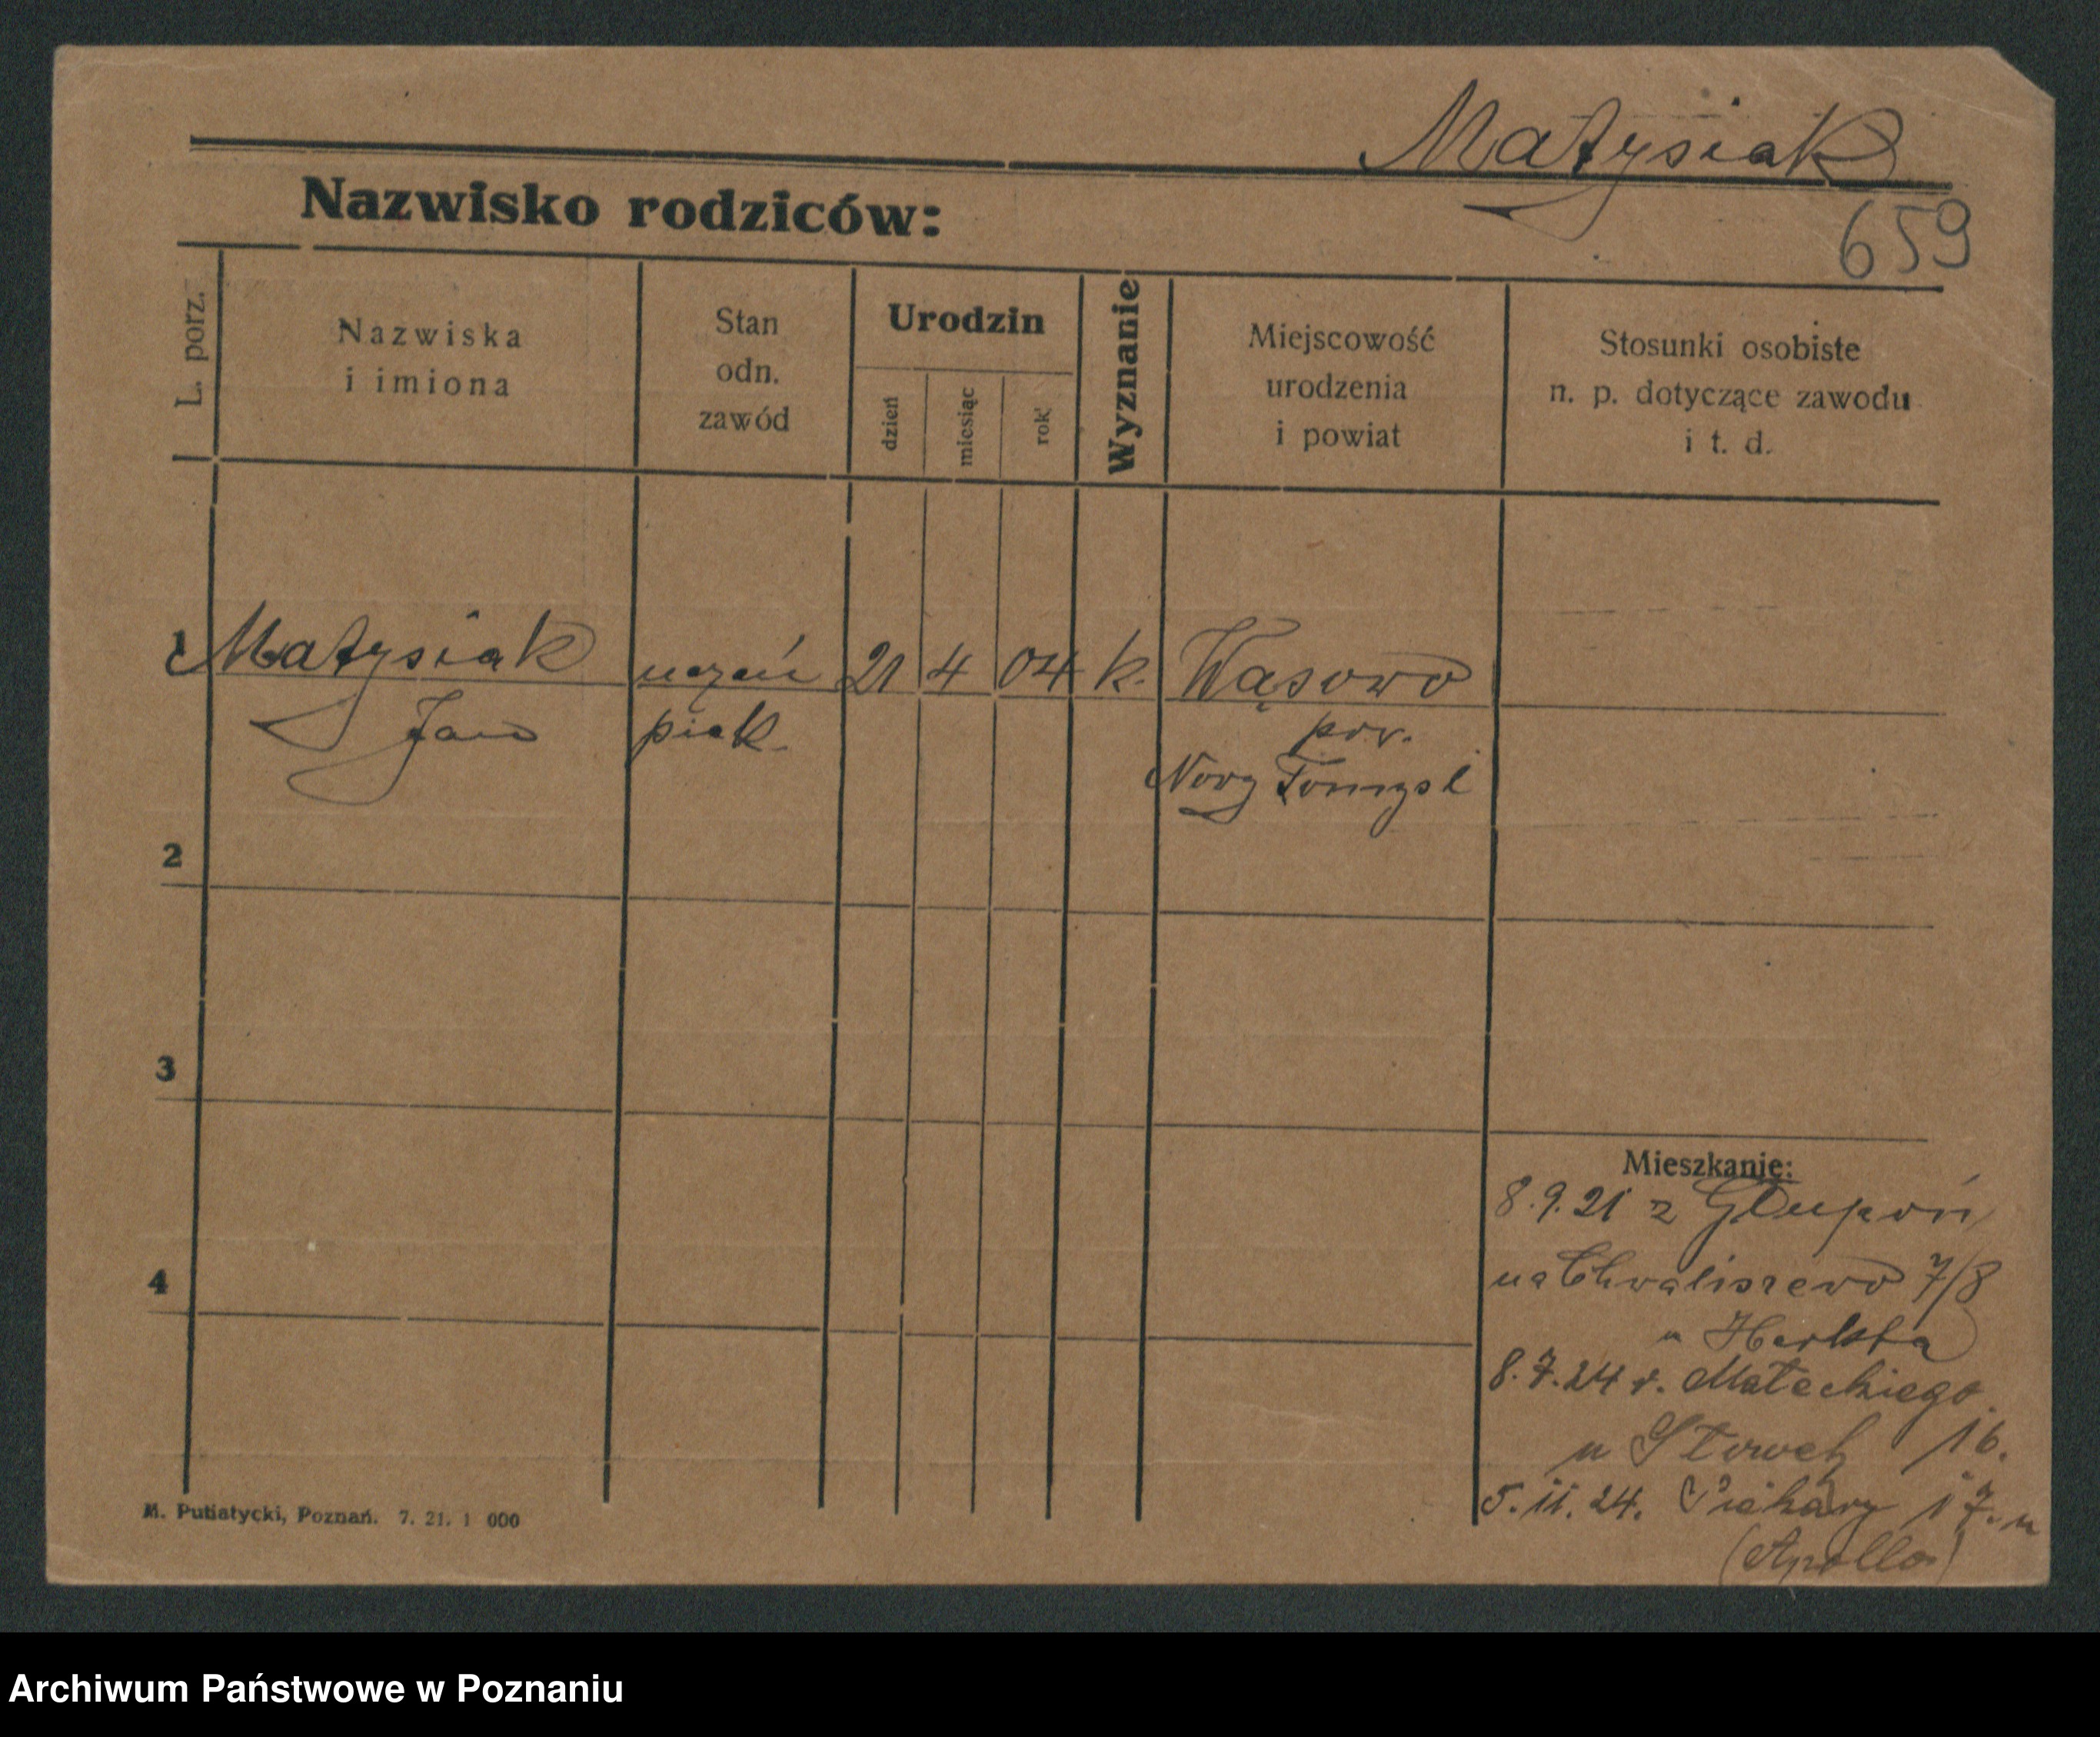 Matysiak
Nazwisko rodziców:
659
L. porz.
Nazwiska
i imiona
Stan
odn.
zawód
Urodzin
dzień
miesiąc
rok
Wyznanie
Miejscowość
urodzenia
i powiat
Stosunki osobiste
n. p. dotyczące zawodu
i t. d.
1 Matysiak uczeń 21 4 04 k. Wąsowo
Jan piek. pow.
Nowy Tomysl
2
3
Mieszkanie:
8.9.21 z Głupoń
4
na Chwaliszewo 7/8
u
8.7.24 r. Małeckiego
u 16.
5.11.24. Piekary 17. u
(Apollo)
M. Putiatycki, Poznań. 7. 21. 1 000
Archiwum Państwowe w Poznaniu